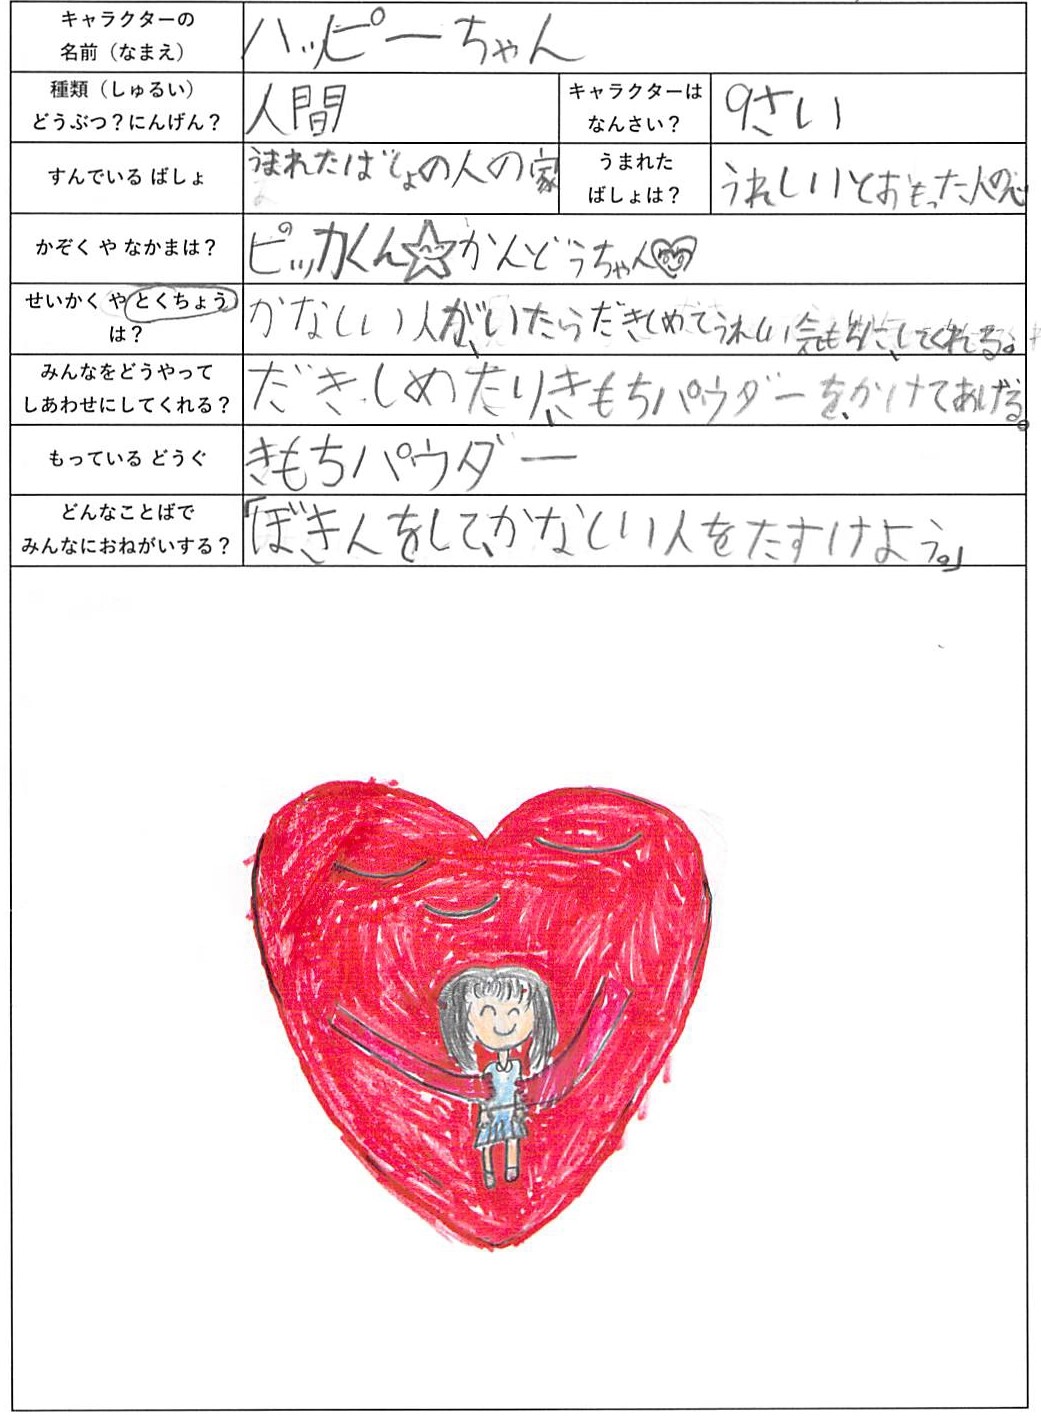 キャラクターの
名前（なまえ）
ハッピーちゃん
種類（しゅるい）
どうぶつ？にんげん？
人間
キャラクターは
なんさい？
9さい
すんでいる ばしょ
うまれたばしょの人の家
うまれた
ばしょは？
うれしいとおもった人の心
かぞく や なかまは？
ピッカくん☆かんどうちゃん♡
せいかく や とくちょう
は？
かなしい人が、いたらだきしめてうれしい 気もちに、してくれる。
みんなをどうやって
しあわせにしてくれる？
だきしめたり、きもちパウダーを、かけてあげる。
もっている どうぐ
きもちパウダー
どんなことばで
みんなにおねがいする？
「ぼきんをして、かなしい人をたすけよう。」